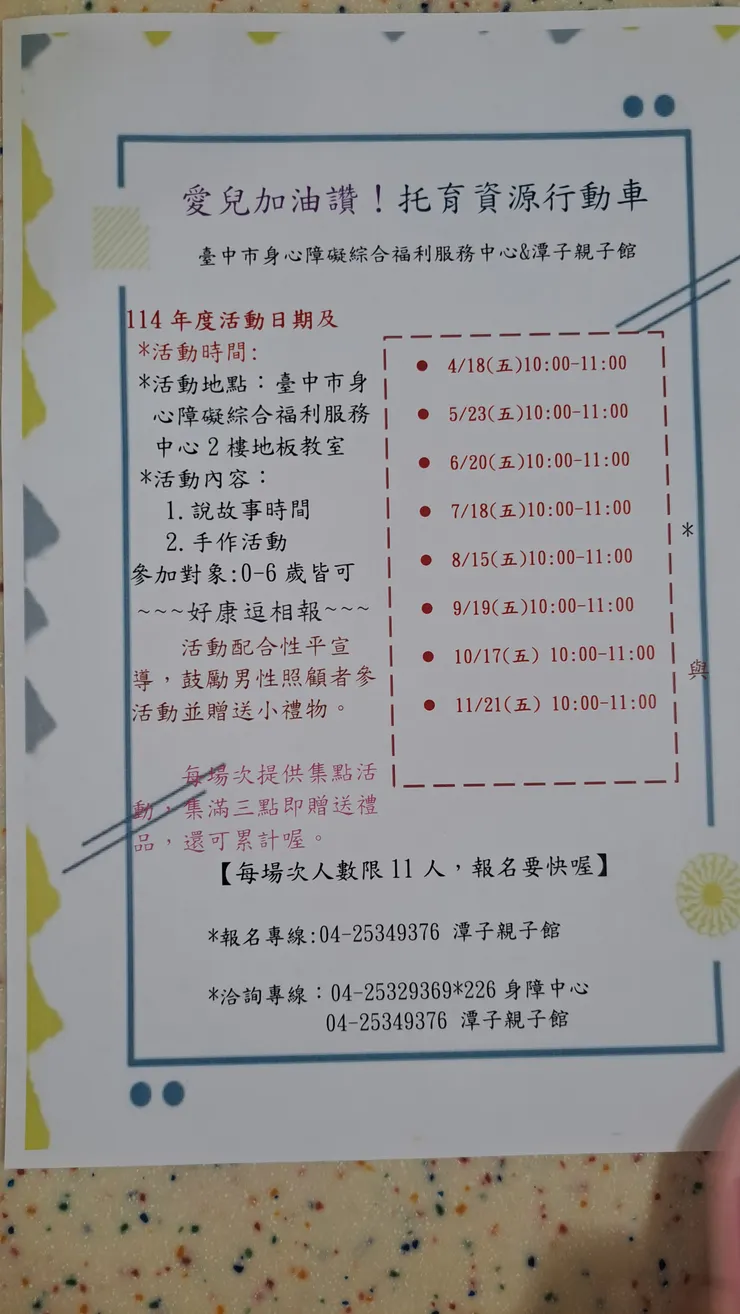 愛兒加油讚！托育資源行動車
臺中市身心障礙綜合福利服務中心&潭子親子館
114 年度活動日期及
*活動時間:
*活動地點：臺中市身
心障礙綜合福利服務
中心 2 樓地板教室
*活動內容：
1. 說故事時間
2. 手作活動
參加對象:0-6 歲皆可
~~~好康逗相報~~~
活動配合性平宣
導，鼓勵男性照顧者參
活動並贈送小禮物。
每場次提供集點活
動，集滿三點即贈送禮
品，還可累計喔。
● 4/18(五)10:00-11:00
● 5/23(五)10:00-11:00
● 6/20(五)10:00-11:00
● 7/18(五)10:00-11:00
● 8/15(五)10:00-11:00
● 9/19(五)10:00-11:00
● 10/17(五) 10:00-11:00
● 11/21(五) 10:00-11:00
*
與
【每場次人數限 11 人，報名要快喔】
*報名專線:04-25349376 潭子親子館
*洽詢專線：04-25329369*226 身障中心
04-25349376 潭子親子館